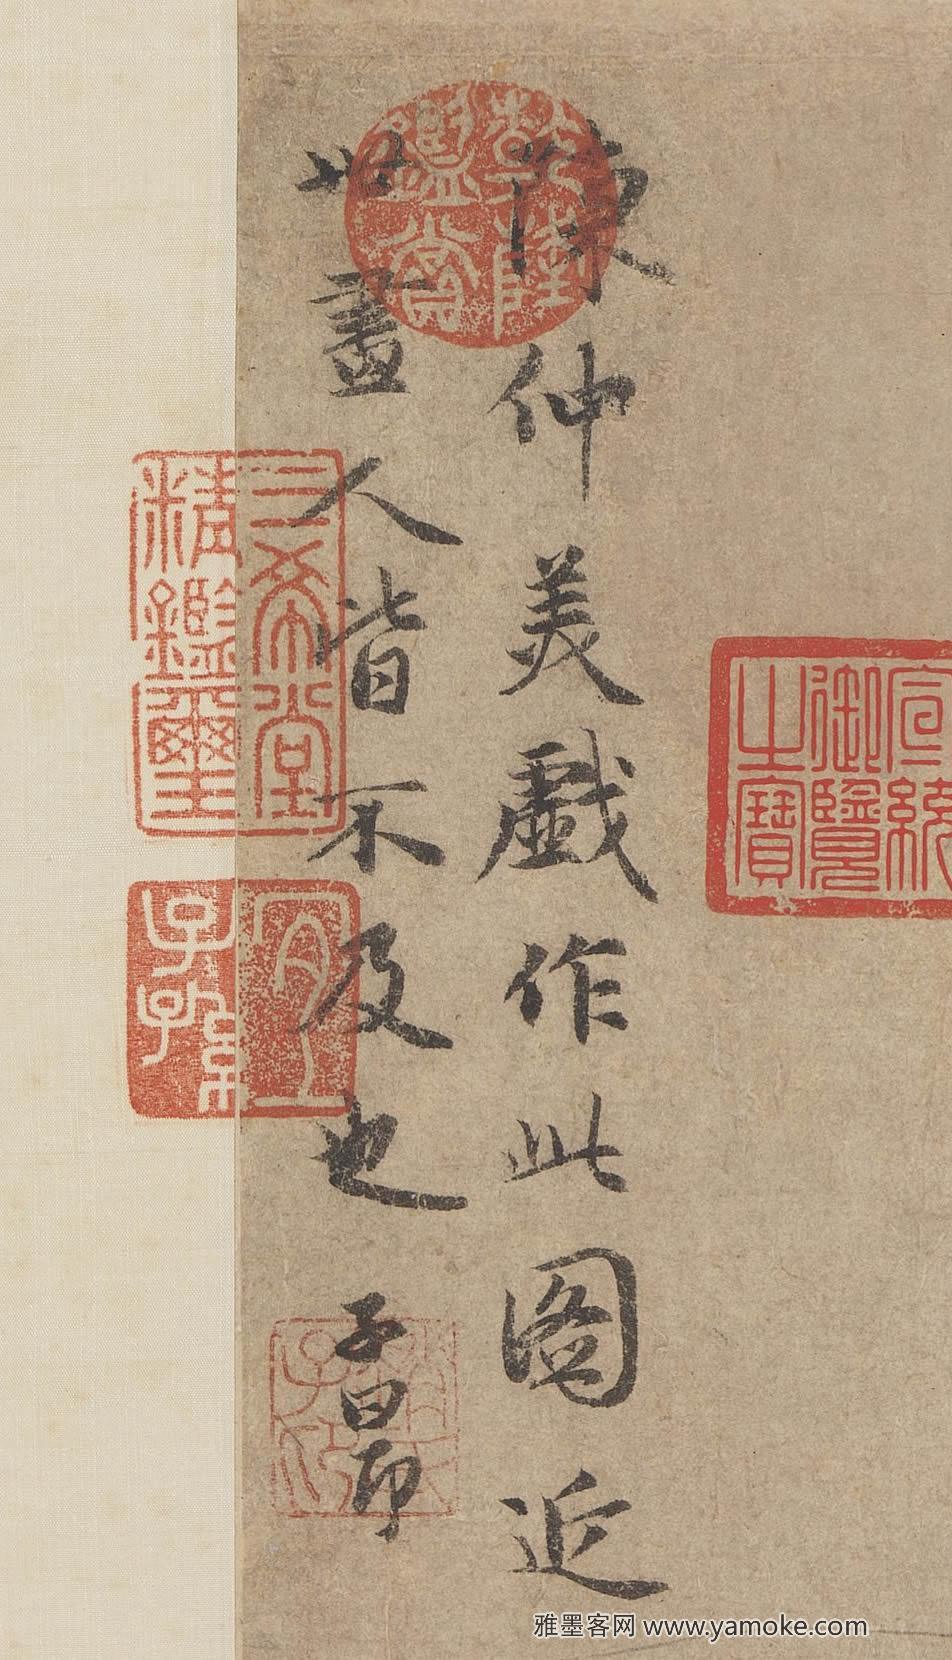 陳仲美戲作此圖近
世畫人皆不及也 子昂
乾隆鑑賞
三希堂
精鑑璽
宜
子孫
宣統
御覽
之寶
雅墨客网 www.yamoke.com